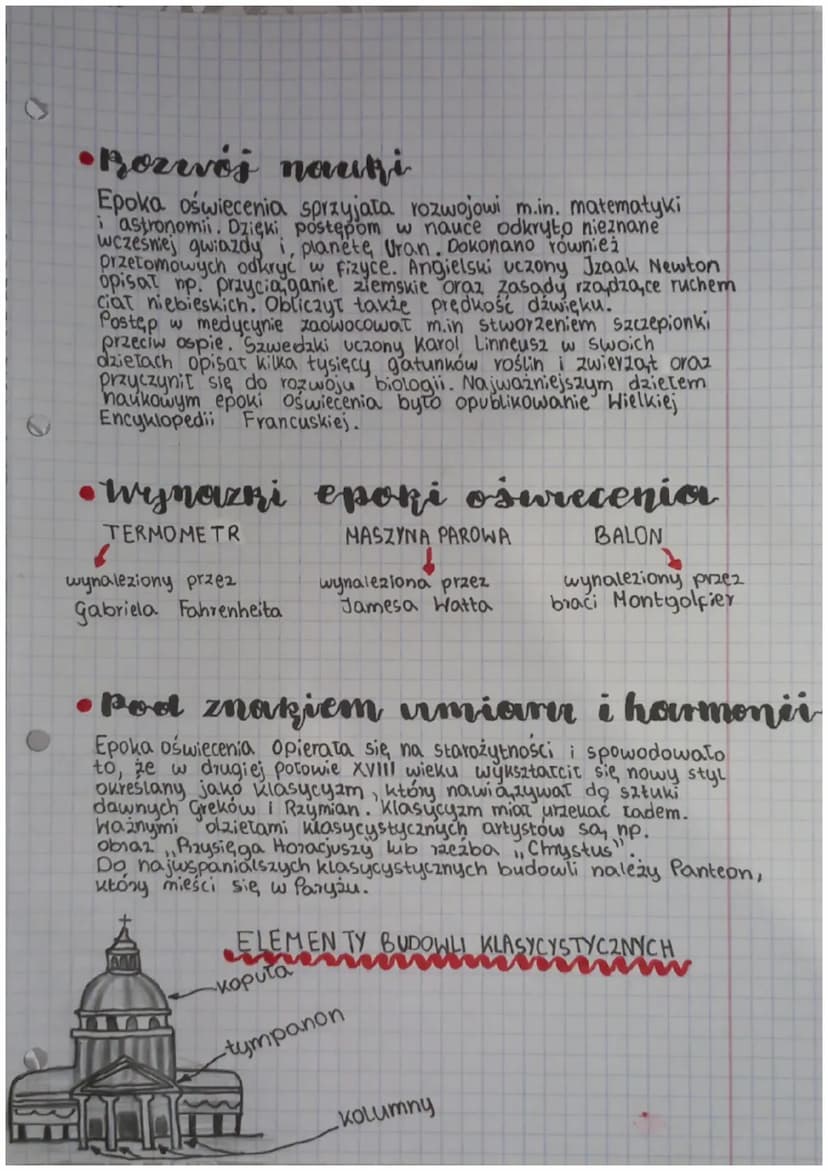 • Rozwój nauki
Epoka oświecenia sprzyjała rozwojowi m.in. matematyki
i astronomii. Dzięki postępom w nauce odkryto nieznane
wcześniej gwiazdy i planetę Uran. Dokonano również
przełomowych odkryć w fizyce. Angielski uczony Izaak Newton
opisał np. przyciąganie ziemskie oraz zasady rządzące ruchem
ciał niebieskich. Obliczył także prędkość dźwięku.
Postęp w medycynie zaowocował m.in stworzeniem szczepionki
przeciw ospie. Szwedzki uczony Karol Linneusz w swoich
dziełach opisał kilka tysięcy gatunków roślin i zwierząt oraz
przyczynił się do rozwoju biologii. Najważniejszym dziełem
naukowym epoki Oświecenia było opublikowanie Wielkiej
Encyklopedii Francuskiej.
• Wynazki epoki oświecenia
TERMOMETR MASZYNA PAROWA BALON
wynaleziony przez wynaleziona przez wynaleziony przez
Gabriela Fahrenheita Jamesa Watta braci Montgolfier
• Pod znakiem umiaru i harmonii
Epoka oświecenia opierała się na starożytności i spowodowało
to, że w drugiej połowie XVIII wieku wykształcił się nowy styl
określany jako klasycyzm, który nawiązywał do sztuki
dawnych Greków i Rzymian. Klasycyzm miał urzekać ładem.
Ważnymi dziełami klasycystycznych artystów są np.
obraz „Przysięga Horacjuszy" lub rzeźba „Chrystus".
Do najwspanialszych klasycystycznych budowli należy Panteon,
który mieści się w Paryżu.
ELEMENTY BUDOWLI KLASYCYSTYCZNYCH
kopuła
tympanon
kolumny